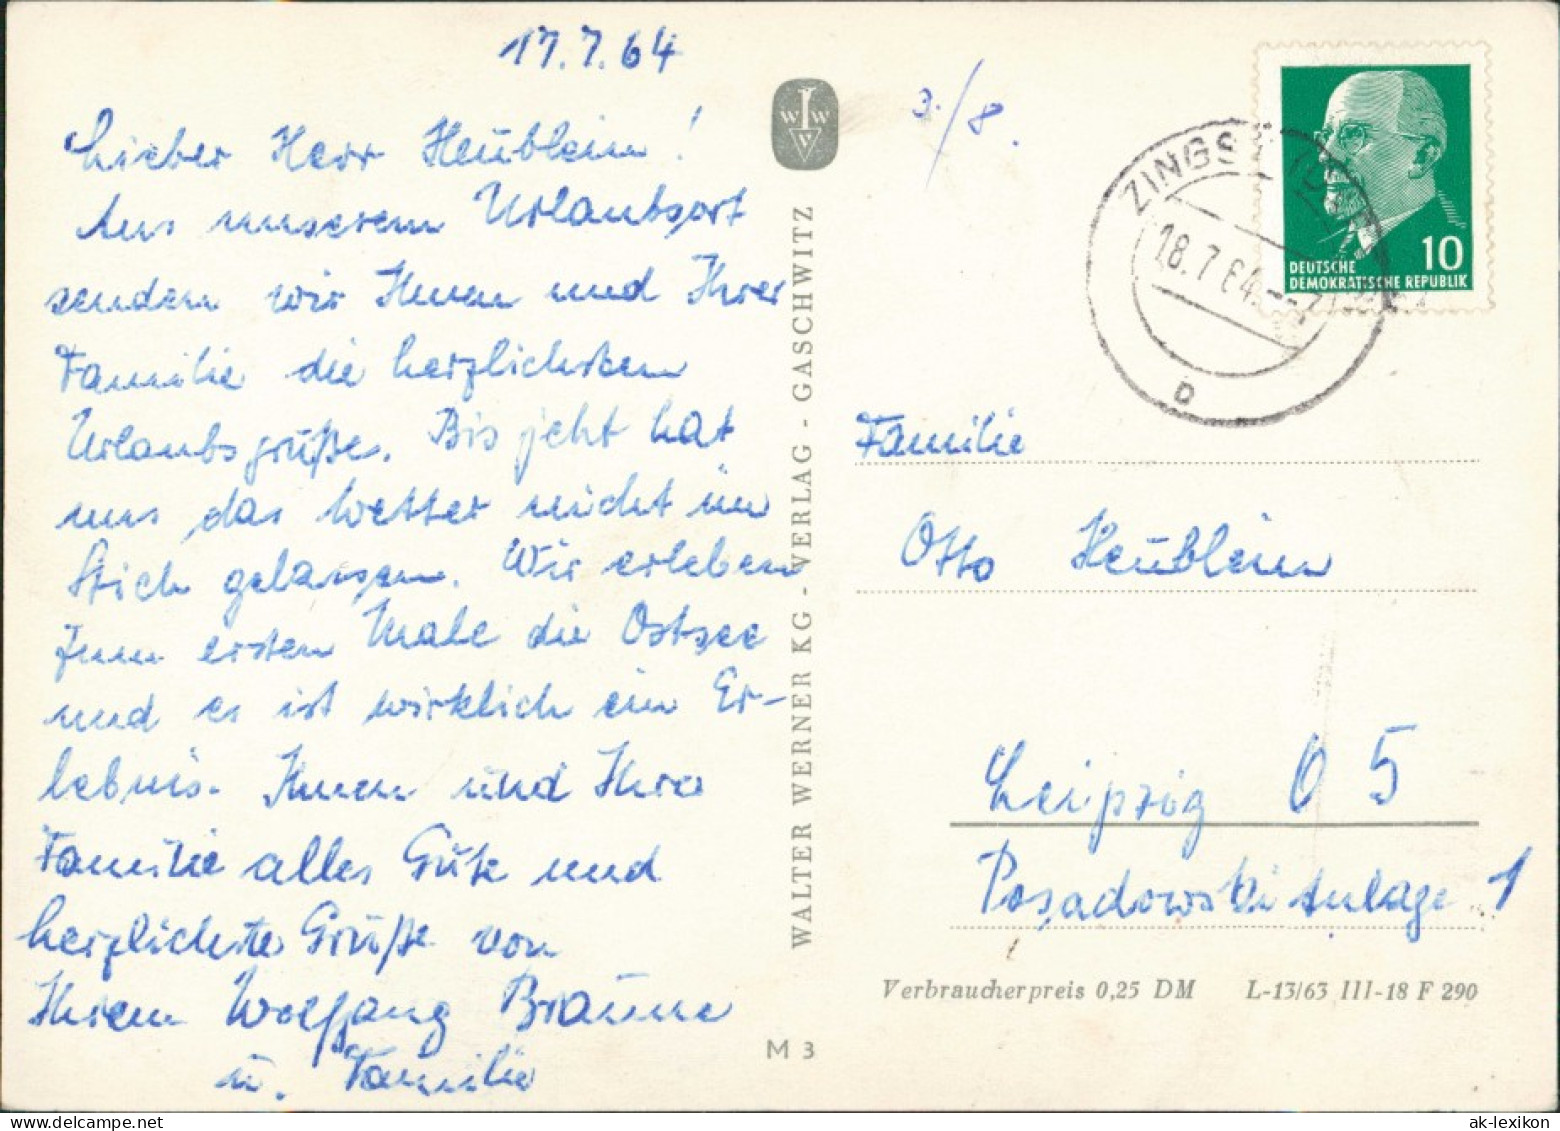 17.7.64
Lieber Herr Heüblein!
Aus unserem Urlaubsort
senden wir Ihnen und Ihrer
Familie die herzlichsten
Urlaubsgrüße. Bis jetzt hat
uns das Wetter nicht im
Stich gelassen. Wir erleben
zum ersten Male die Ostsee
und es ist wirklich ein Er-
lebnis. Ihnen und Ihrer
Familie alles Gute und
herzlichste Grüße von
Ihrem Wolfgang Bräune
u. Familie
W W V
WALTER WERNER KG - VERLAG - GASCHWITZ
M 3
3./8.
ZINGST
18.7.64
D
10
DEUTSCHE
DEMOKRATISCHE REPUBLIK
Familie
Otto Heüblein
Leipzig O 5
Posadowski Anlage 1
Verbraucherpreis 0,25 DM L-13/63 III-18 F 290
ak-lexikon.com